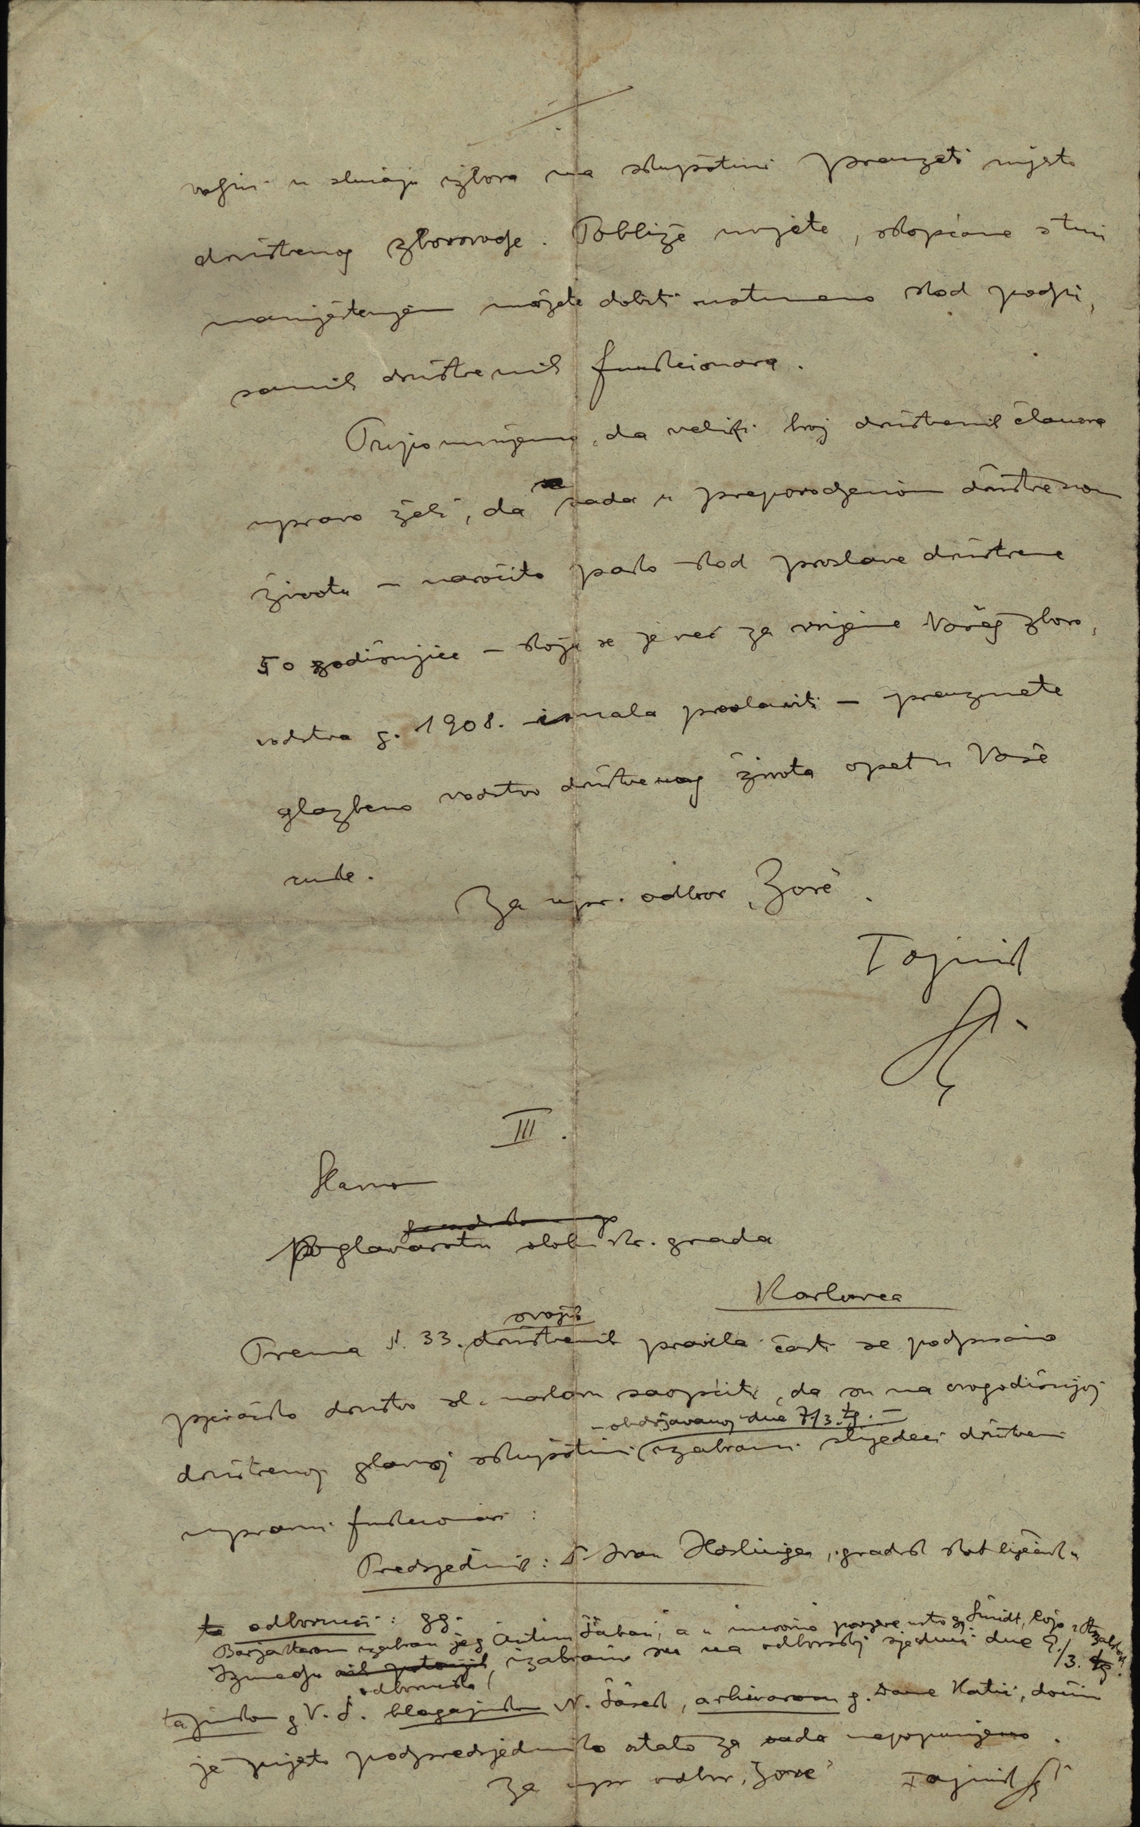 voljni u slučaju izbora na skupštini preuzeti mjesto
društvenog zborovodje. Pobliže uvjete, skopčane s tim
namještenjem možete dobiti ustmeno kod podpi-
sanih društvenih funkcionara.
Pripominjemo, da veliki broj društvenih članova
upravo želi, da sada u preporodjenom društvenom
životu – naročito pako kod proslave društvene
50 godišnjice – koja se je već za vrijeme Vašeg zboro-
vodstva g. 1908. imala proslaviti – preuzmete
glazbeno vodstvo društvenog života opet u Vaše
ruke.
Za upr. odbor „Zore".
Tajnik
III.
Slavno
Poglavarstvu slob. kr. grada
Karlovca
svojih
Prema §. 33. društvenih pravila časti se podpisano
pjevačko društvo sl. naslovu saopćiti, da su na ovogodišnjoj
– obdržavanoj dne 7/3. tg. –
društvenoj glavnoj skupštini izabrani slijedeći društveni
upravni funkcionari:
Predsjednik: Dr Ivan , gradski kot. liječnik
te odbornici: gg.
Barjaktarom izabran je g. Šaban, a u g. Šmidt,
Izmedju odbornika, izabrani su na odborskoj sjednici dne 9./3. tg.
tajnikom g. V. Š. blagajnikom N. , arhivarom g. Dane Katić, dočim
je mjesto podpredsjednika ostalo za sada nepopunjeno.
Za upr. odbor „Zore" Tajnik